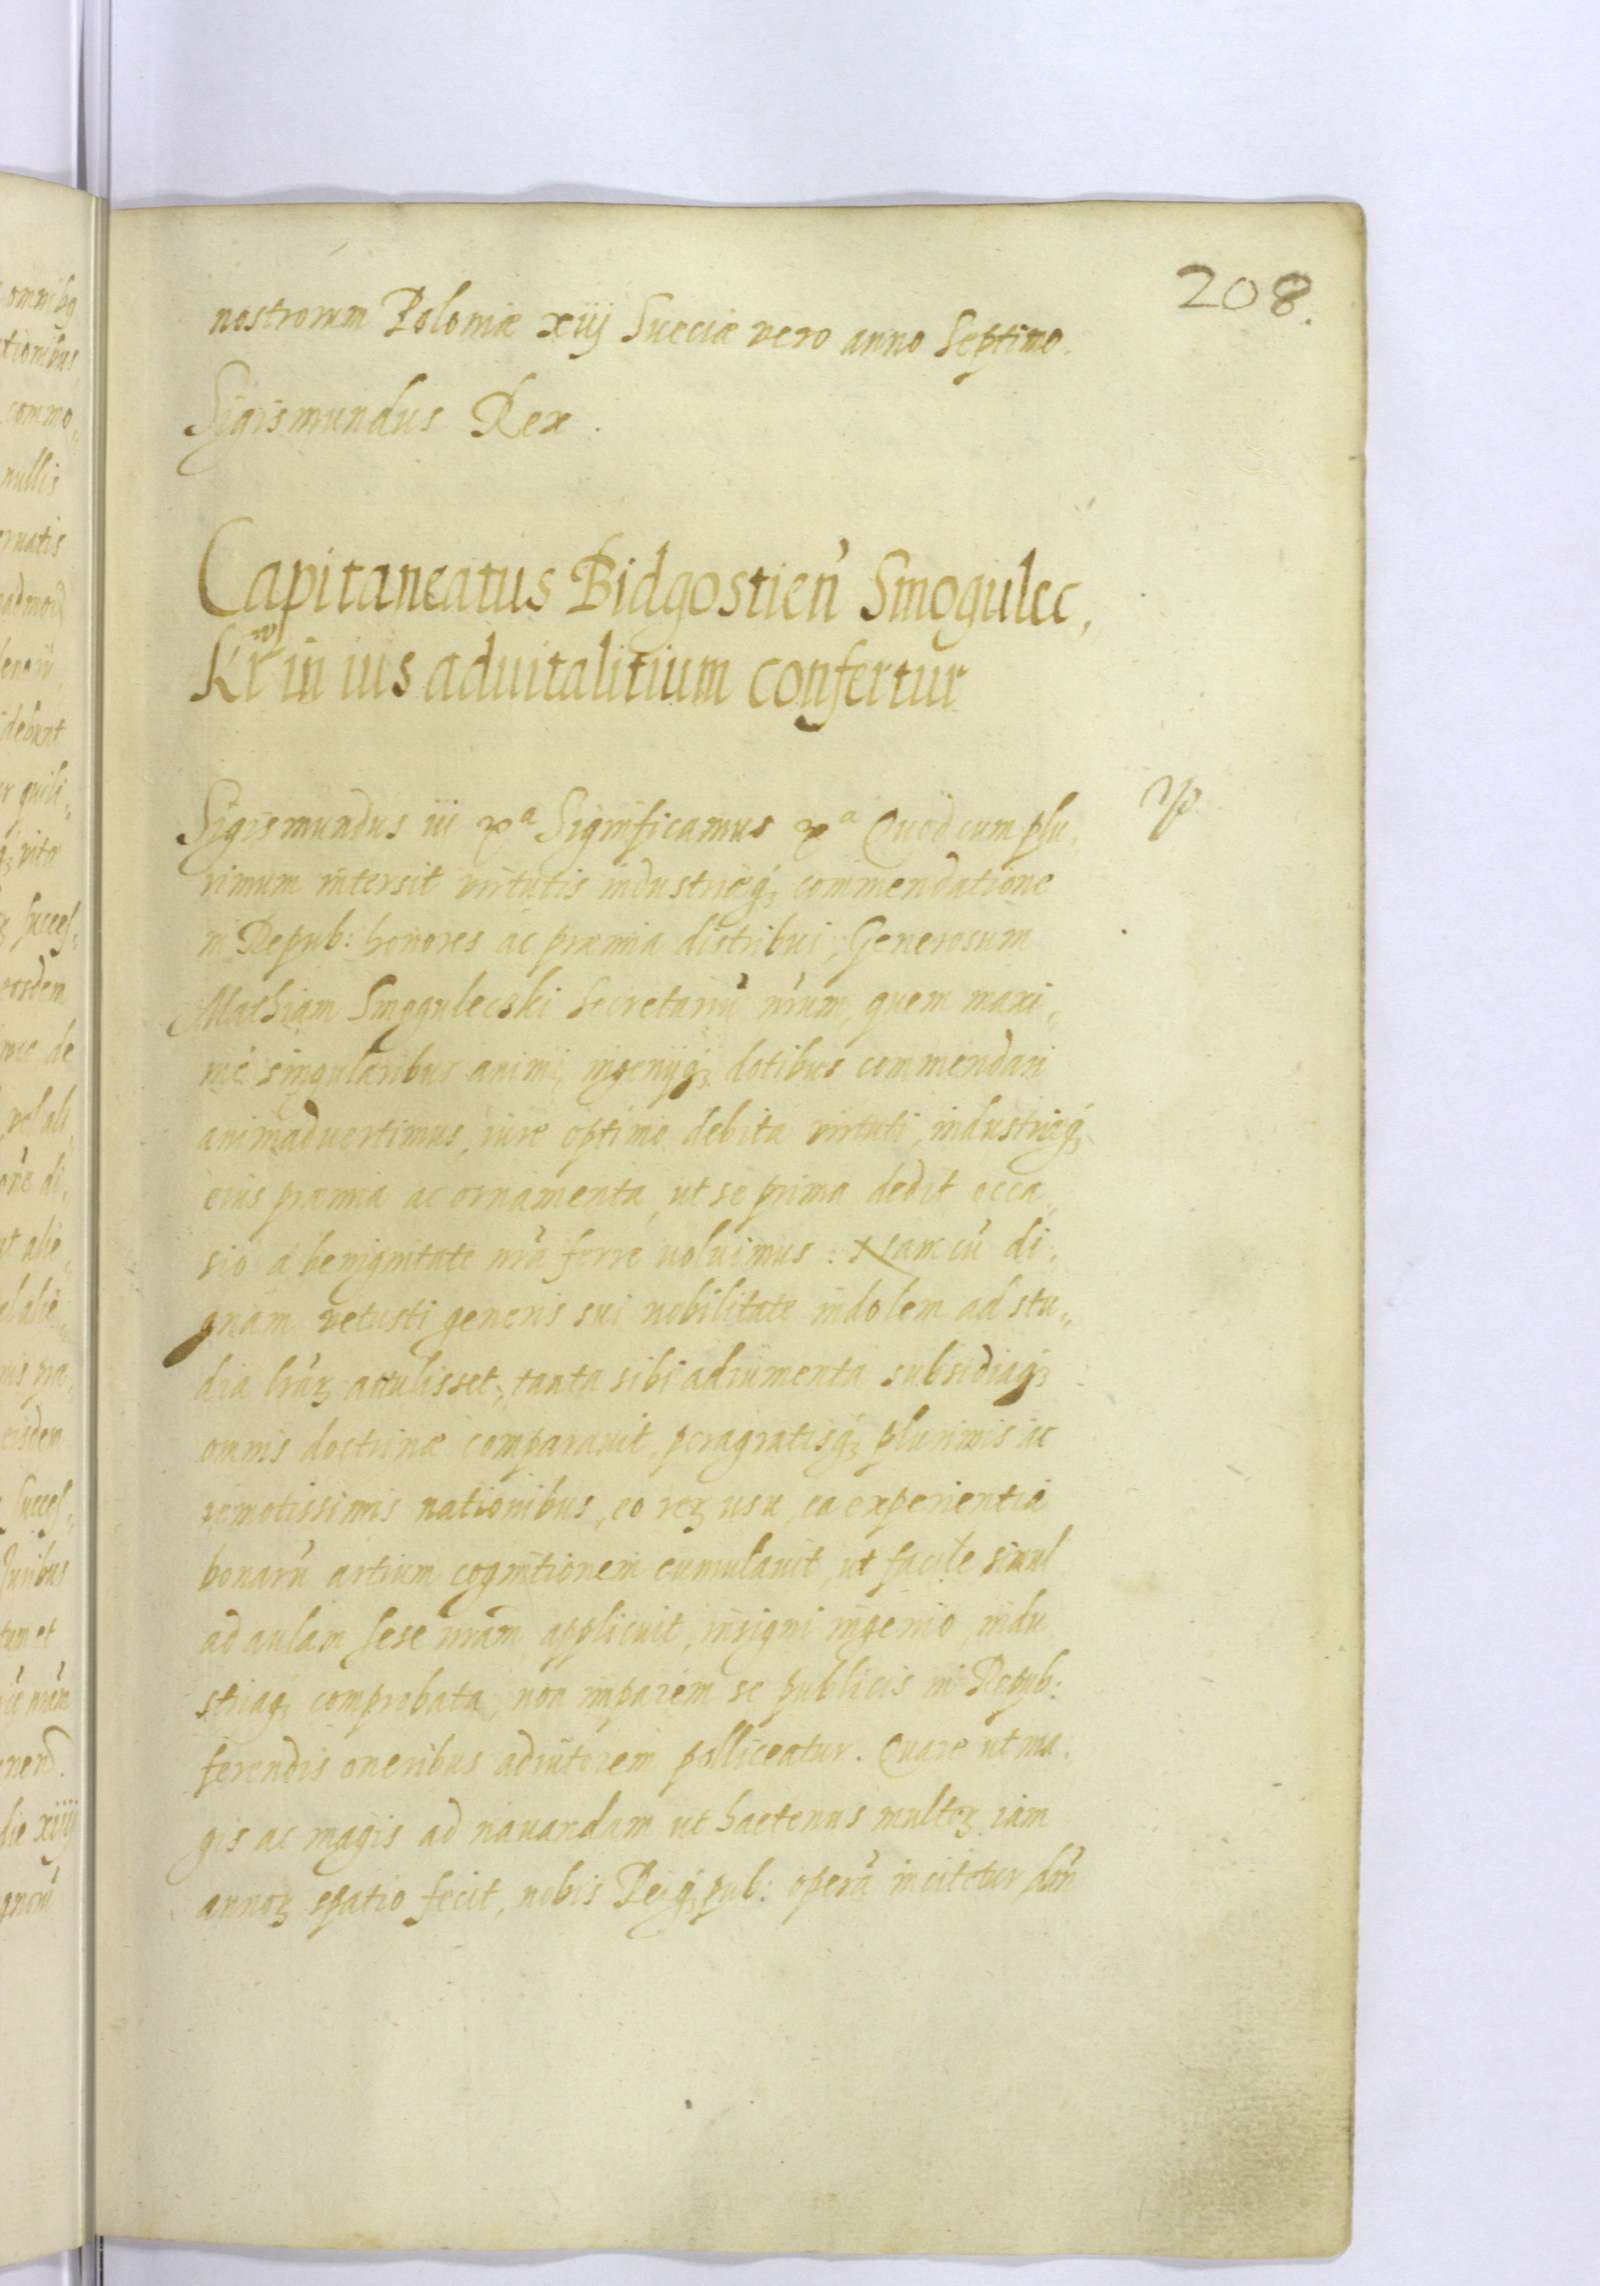 208.
nostrorum Poloniæ xiij Sueciæ vero anno Septimo.
Sigismundus Rex.
Capitaneatus Bidgostien̄ Smogulec,
Ki in ius aduitalitium confertur
Sigismundus iii Significamus Quod cum plu,
rimum intersit virtutis industriæq́; commendatione
in Repub: honores ac præmia distribui, Generosum
Mathiam Smogulecski Secretariū nr̄um, quem maxi,,
mé singularibus animi, ingenijq́; dotibus commendari
animaduertimus, iure optimo debita virtuti, industriæq́;
eius præmia ac ornamenta, ut se prima dedit occa,,
sio á benignitate nr̄a ferre uoluimus: Nam cū di,
gnam vetusti generis sui nobilitate indolem ad stu,,
dia lr̄aꝝ attulisset, tanta sibi adiumenta subsidiaq́;
omnis doctrinæ comparauit, peragratisq́; plurimis ac
remotissimis nationibus, eo reꝝ usu, ea experientia
bonarū artium cognitionem cumulauit, ut facile simul
ad aulam sese nr̄am applicuit, insigni ingenio, indu
striaq; comprobata, non imparem se publicis in Repub:
ferendis oneribus adiutorem polliceatur. Quare ut ma,
gis ac magis ad nauandam ut hactenus multoꝝ iam
annoꝝ spatio fecit, nobis Reiq́; pub: operā incitetur,